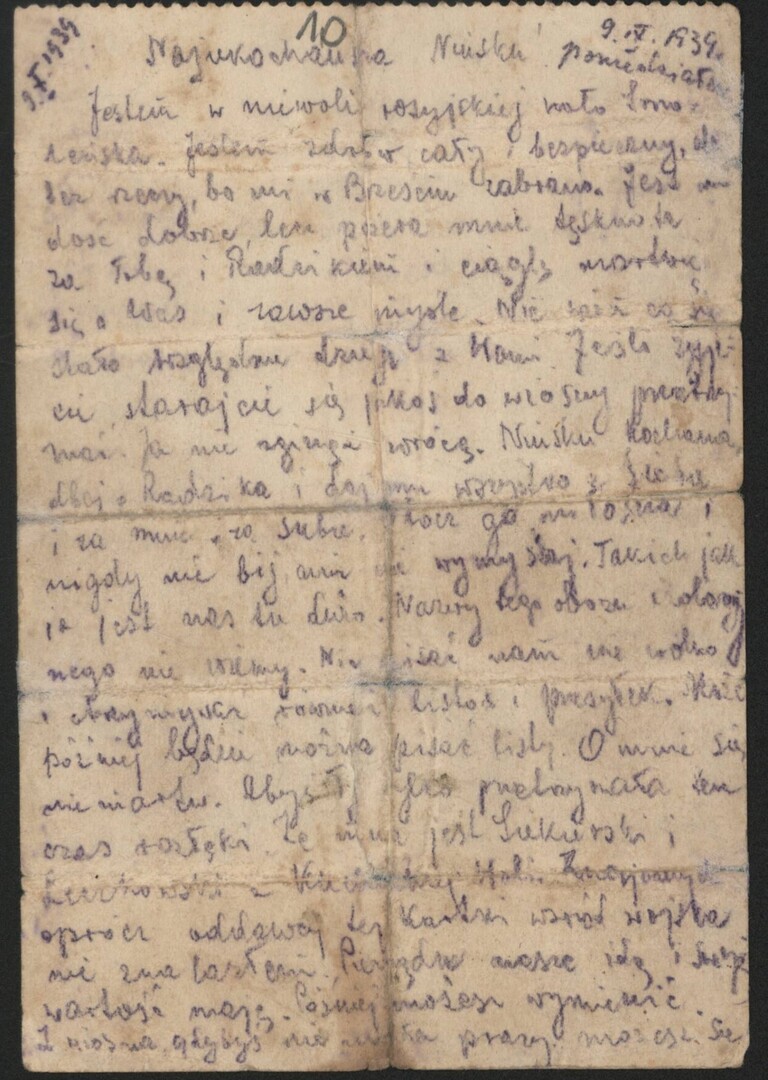 10
9. X. 1939
9. X. 1939.
poniedziałek
Najukochańsza Niuśku!
Jestem w niewoli rosyjskiej koło Smo-
leńska. Jestem zdrów cały i bezpieczny, ale
bez rzeczy, bo mi w Brześciu zabrano. Jest mi
dość dobrze, lecz pożera mnie tęsknota
za Tobą i Radzikiem i ciągle martwię
się o Was i zawsze myślę. Nie wiem co się
stało względnie dzieje z Wami. Jeśli żyje-
cie, starajcie się jakoś do wiosny przetrzy-
mać. Ja nie zginę i wrócę. Niuśku kochana,
dbaj o Radzika i daj mu wszystko z siebie
i za mnie i za siebie. Otocz go miłością i
nigdy nie bij ani nie wymyślaj. Takich jak
ja jest nas tu dużo. Nazwy tego obozu
nego nie wiemy. Nie pisać nam nie wolno
i otrzymywać również listów i przesyłek. Może
później będzie można pisać listy. O mnie się
nie martw. Abyś Ty tylko przetrzymała ten
czas rozłąki. Ze mną jest Siekierski i
z Hali. Znajomych
oprócz oddawcy tej kartki wśród wojska
nie znalazłem. Pieniądze nasze idą i
wartość mają. Później możesz wymienić.
Z wiosną, gdybyś nie miała pracy możesz się